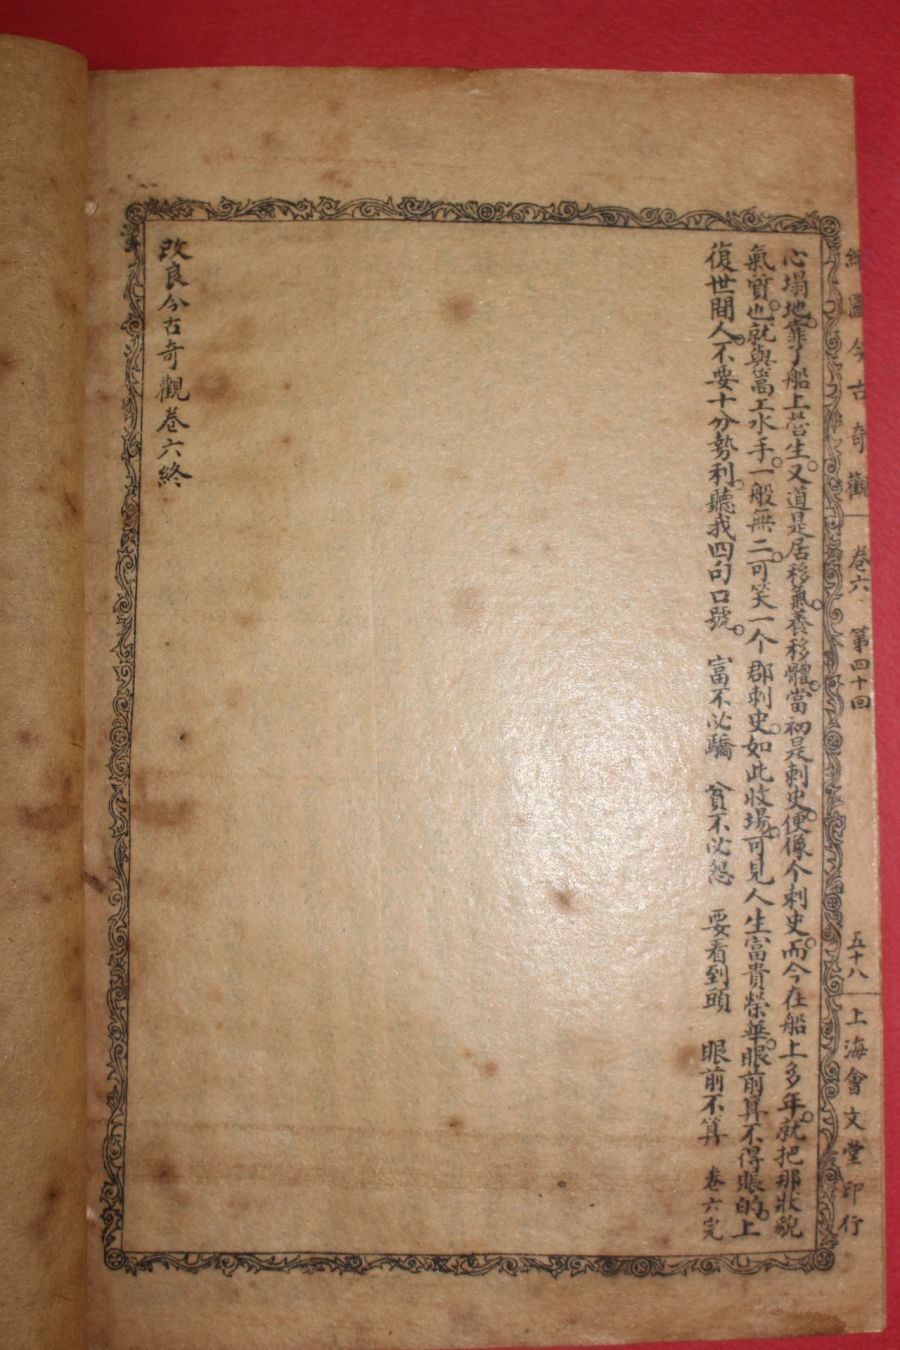 繪圖今古奇觀 卷六 第四十回 五十八 上海會文堂印行
心塌地靠了船上營生。又道是居移氣。養移體。當初是刺史。便像个刺史。而今在船上多年。就把那狀貌
氣質。也就與篙工水手。一般無二。可笑一个郡刺史。如此收塲。可見人生富貴榮華。眼前算不得賬的。上
復世間人。不要十分勢利。聽我四句口號。 富不必驕 貧不必怨 要看到頭 眼前不算 卷六完
改良今古奇觀卷六終